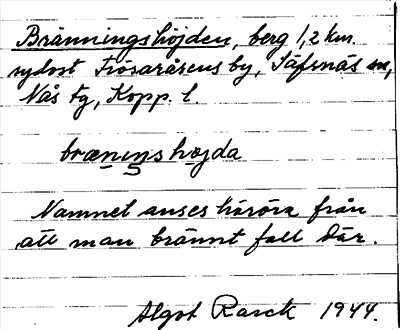 Bränningshöjden, berg 1,2 km.
sydost Fösaråsens by, Säfsnäs sn,
Nås tg, Kopp. l.
brænıŋshøjda
Namnet anses häröra från
att man bränt fall där.
Algot Rarck 1944.